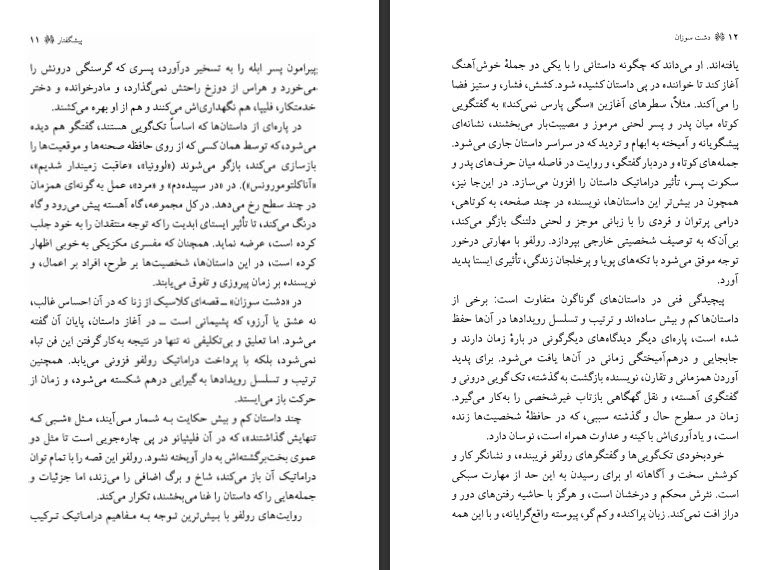 پیشگفتار ۱۱
پیرامون پسر ابله را به تسخیر درآورد، پسری که گرسنگی درونش را
می‌خورد و هراس از دوزخ راحتش نمی‌گذارد، و مادرخوانده و دختر
خدمتکار، فلیپا، هم نگهداری‌اش می‌کنند و هم از او بهره می‌کشند.
در پاره‌ای از داستان‌ها که اساساً تک‌گویی هستند، گفتگو هم دیده
می‌شود، که توسط همان کسی که از روی حافظه صحنه‌ها و موقعیت‌ها را
بازسازی می‌کند، بازگو می‌شوند («لوونیا»، «عاقبت زمیندار شدیم»،
«آناکلتومورونس»). در «در سپیده‌دم» و «مرد»، عمل به گونه‌ای همزمان
در چند سطح رخ می‌دهد. در کل مجموعه، گاه آهسته پیش می‌رود و گاه
درنگ می‌کند، تا تأثیر ایستای ابدیت را که توجه منتقدان را به خود جلب
کرده است، عرضه نماید. همچنان که مفسری مکزیکی به خوبی اظهار
کرده است، در این داستان‌ها، شخصیت‌ها بر طرح، افراد بر اعمال، و
نویسنده بر زمان پیروزی و تفوق می‌یابند.
در «دشت سوزان» ــ قصه‌ای کلاسیک از زنا که در آن احساس غالب،
نه عشق یا آرزو، که پشیمانی است ــ در آغاز داستان، پایان آن گفته
می‌شود. اما تعلیق و بی‌تکلیفی نه تنها در نتیجه به‌کار گرفتن این فن تباه
نمی‌شود، بلکه با پرداخت دراماتیک رولفو فزونی می‌یابد. همچنین
ترتیب و تسلسل رویدادها به گیرایی درهم شکسته می‌شود، و زمان از
حرکت باز می‌ایستد.
چند داستان کم و بیش حکایت به شمار می‌آیند، مثل «شبی که
تنهایش گذاشتند»، که در آن فلیثیانو در پی چاره‌جویی است تا مثل دو
عموی بخت‌برگشته‌اش به دار آویخته نشود. رولفو این قصه را با تمام توان
دراماتیک آن باز می‌کند، شاخ و برگ اضافی را می‌زند، اما جزئیات و
جمله‌هایی را که داستان را غنا می‌بخشند، تکرار می‌کند.
روایت‌های رولفو با بیش‌ترین توجه به مفاهیم دراماتیک ترکیب
۱۲ دشت سوزان
یافته‌اند. او می‌داند که چگونه داستانی را با یکی دو جملهٔ خوش‌آهنگ
آغاز کند تا خواننده در پی داستان کشیده شود. کشش، فشار، و ستیز فضا
را می‌آکند. مثلاً، سطرهای آغازین «سگی پارس نمی‌کند» به گفتگویی
کوتاه میان پدر و پسر لحنی مرموز و مصیبت‌بار می‌بخشند، نشانه‌ای
پیشگویانه و آمیخته به ابهام و تردید که در سراسر داستان جاری می‌شود.
جمله‌های کوتاه و دردبار گفتگو، و روایت در فاصله میان حرف‌های پدر و
سکوت پسر، تأثیر دراماتیک داستان را افزون می‌سازد. در این‌جا نیز،
همچون در بیش‌تر این داستان‌ها، نویسنده در چند صفحه، به کوتاهی،
درامی پرتوان و فردی را با زبانی موجز و لحنی دلتنگ بازگو می‌کند،
بی‌آن‌که به توصیف شخصیتی خارجی بپردازد. رولفو با مهارتی درخور
توجه موفق می‌شود با تکه‌های پویا و پرخلجان زندگی، تأثیری ایستا پدید
آورد.
پیچیدگی فنی در داستان‌های گوناگون متفاوت است: برخی از
داستان‌ها کم و بیش ساده‌اند و ترتیب و تسلسل رویدادها در آن‌ها حفظ
شده است، در پاره‌ای دیگر دیدگاه‌های دیگرگونی در بارهٔ زمان دارند و
جابجایی و درهم‌آمیختگی زمانی در آن‌ها یافت می‌شود. برای پدید
آوردن همزمانی و تقارن، نویسنده بازگشت به گذشته، تک‌گویی درونی و
گفتگوی آهسته، و نقل گهگاهی بازتاب غیرشخصی را به‌کار می‌گیرد.
زمان در سطوح حال و گذشته سببی، که در حافظهٔ شخصیت‌ها زنده
است، و یادآوری‌اش با کینه و عداوت همراه است، نوسان دارد.
خودبخودی تک‌گویی‌ها و گفتگوهای رولفو فریبنده، و نشانگر کار و
کوشش سخت و آگاهانه او برای رسیدن به این حد از مهارت سبکی
است. نثرش محکم و درخشان است، و هرگز با حاشیه رفتن‌های دور و
دراز افت نمی‌کند. زبان پراکنده و کم‌گو، پیوسته واقع‌گرایانه، و با این همه